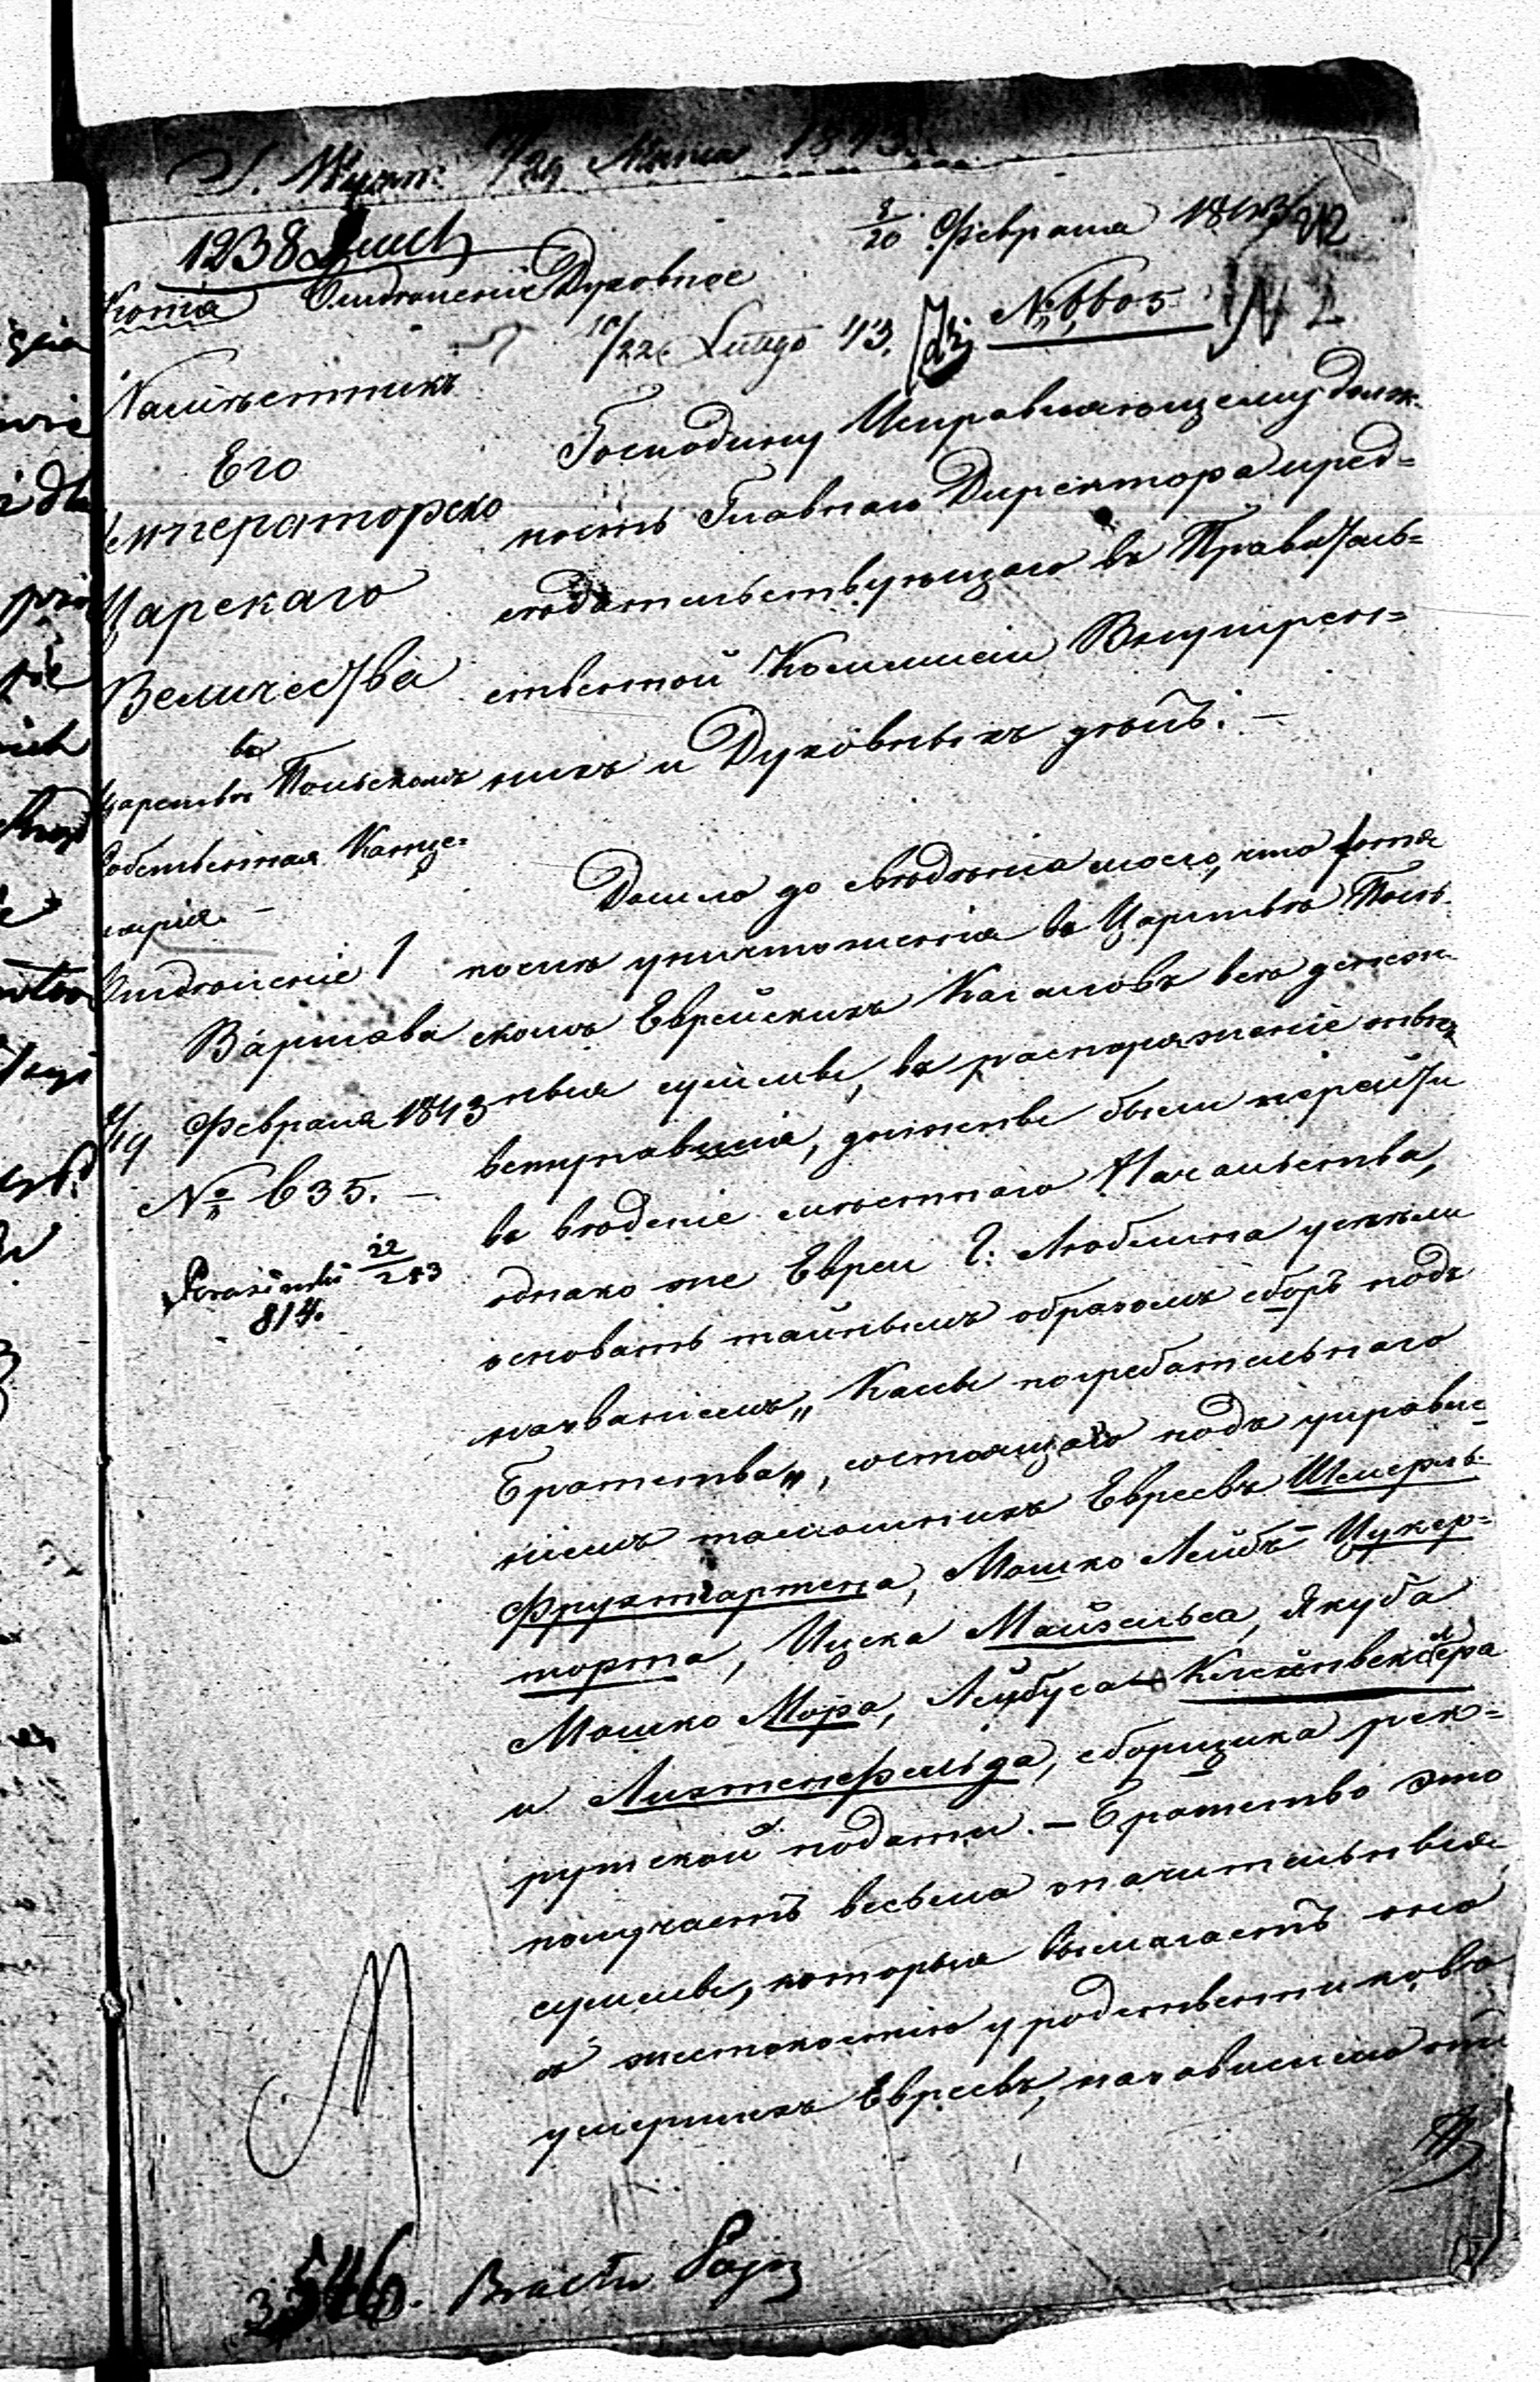 17/29 Марта 1843.
8/20 Февраля 1843
1238
Копія Отдѣленіе Духовное
10/22 Lutego 43.
№ 6605
№ 2
Намѣстникъ
Его
Императорско
Царскаго
Величества
въ
Царствѣ Польскомъ
Собственная Канце-
лярія. —
Отдѣленіе 1
Варшава
Февраля 1843
№ 635. —
22/2 43
814.
Господину Исправляющему долж-
ность Главнаго Директора пред-
сѣдательствующаго въ Правитель-
ственной Коммисіи Внутрен-
нихъ и Духовныхъ дѣлъ. —
Дошло до свѣдѣнія моего, что хотя
послѣ уничтоженія въ Царствѣ Поль-
скомъ Еврейскихъ Кагаловъ всѣ денеж-
ныя суммы, въ распоряженіе оныхъ
вступавшія, должны были перейти
въ вѣденіе мѣстнаго Начальства,
однако же Евреи Г: Люблина успѣли
основать тайнымъ образомъ сборъ подъ
названіемъ „Кассы погребательнаго
Братства„, состоящаго подъ управле-
ніемъ тамошнихъ Евреевъ Шмерль-
Фрухтгартена, Мошко Лейбъ Цукер-
торта, Ицека Майзельса, Якуба
Мошко Мора, Лейбуса Клейнвекслера
и Лихтенфельда, сборщика рек-
рутской подати. — Братство это
получаетъ весьма значительныя
суммы, которыя вымагаетъ оно
съ жестокостію у родственниковъ
умершихъ Евреевъ, независимо отъ
546.